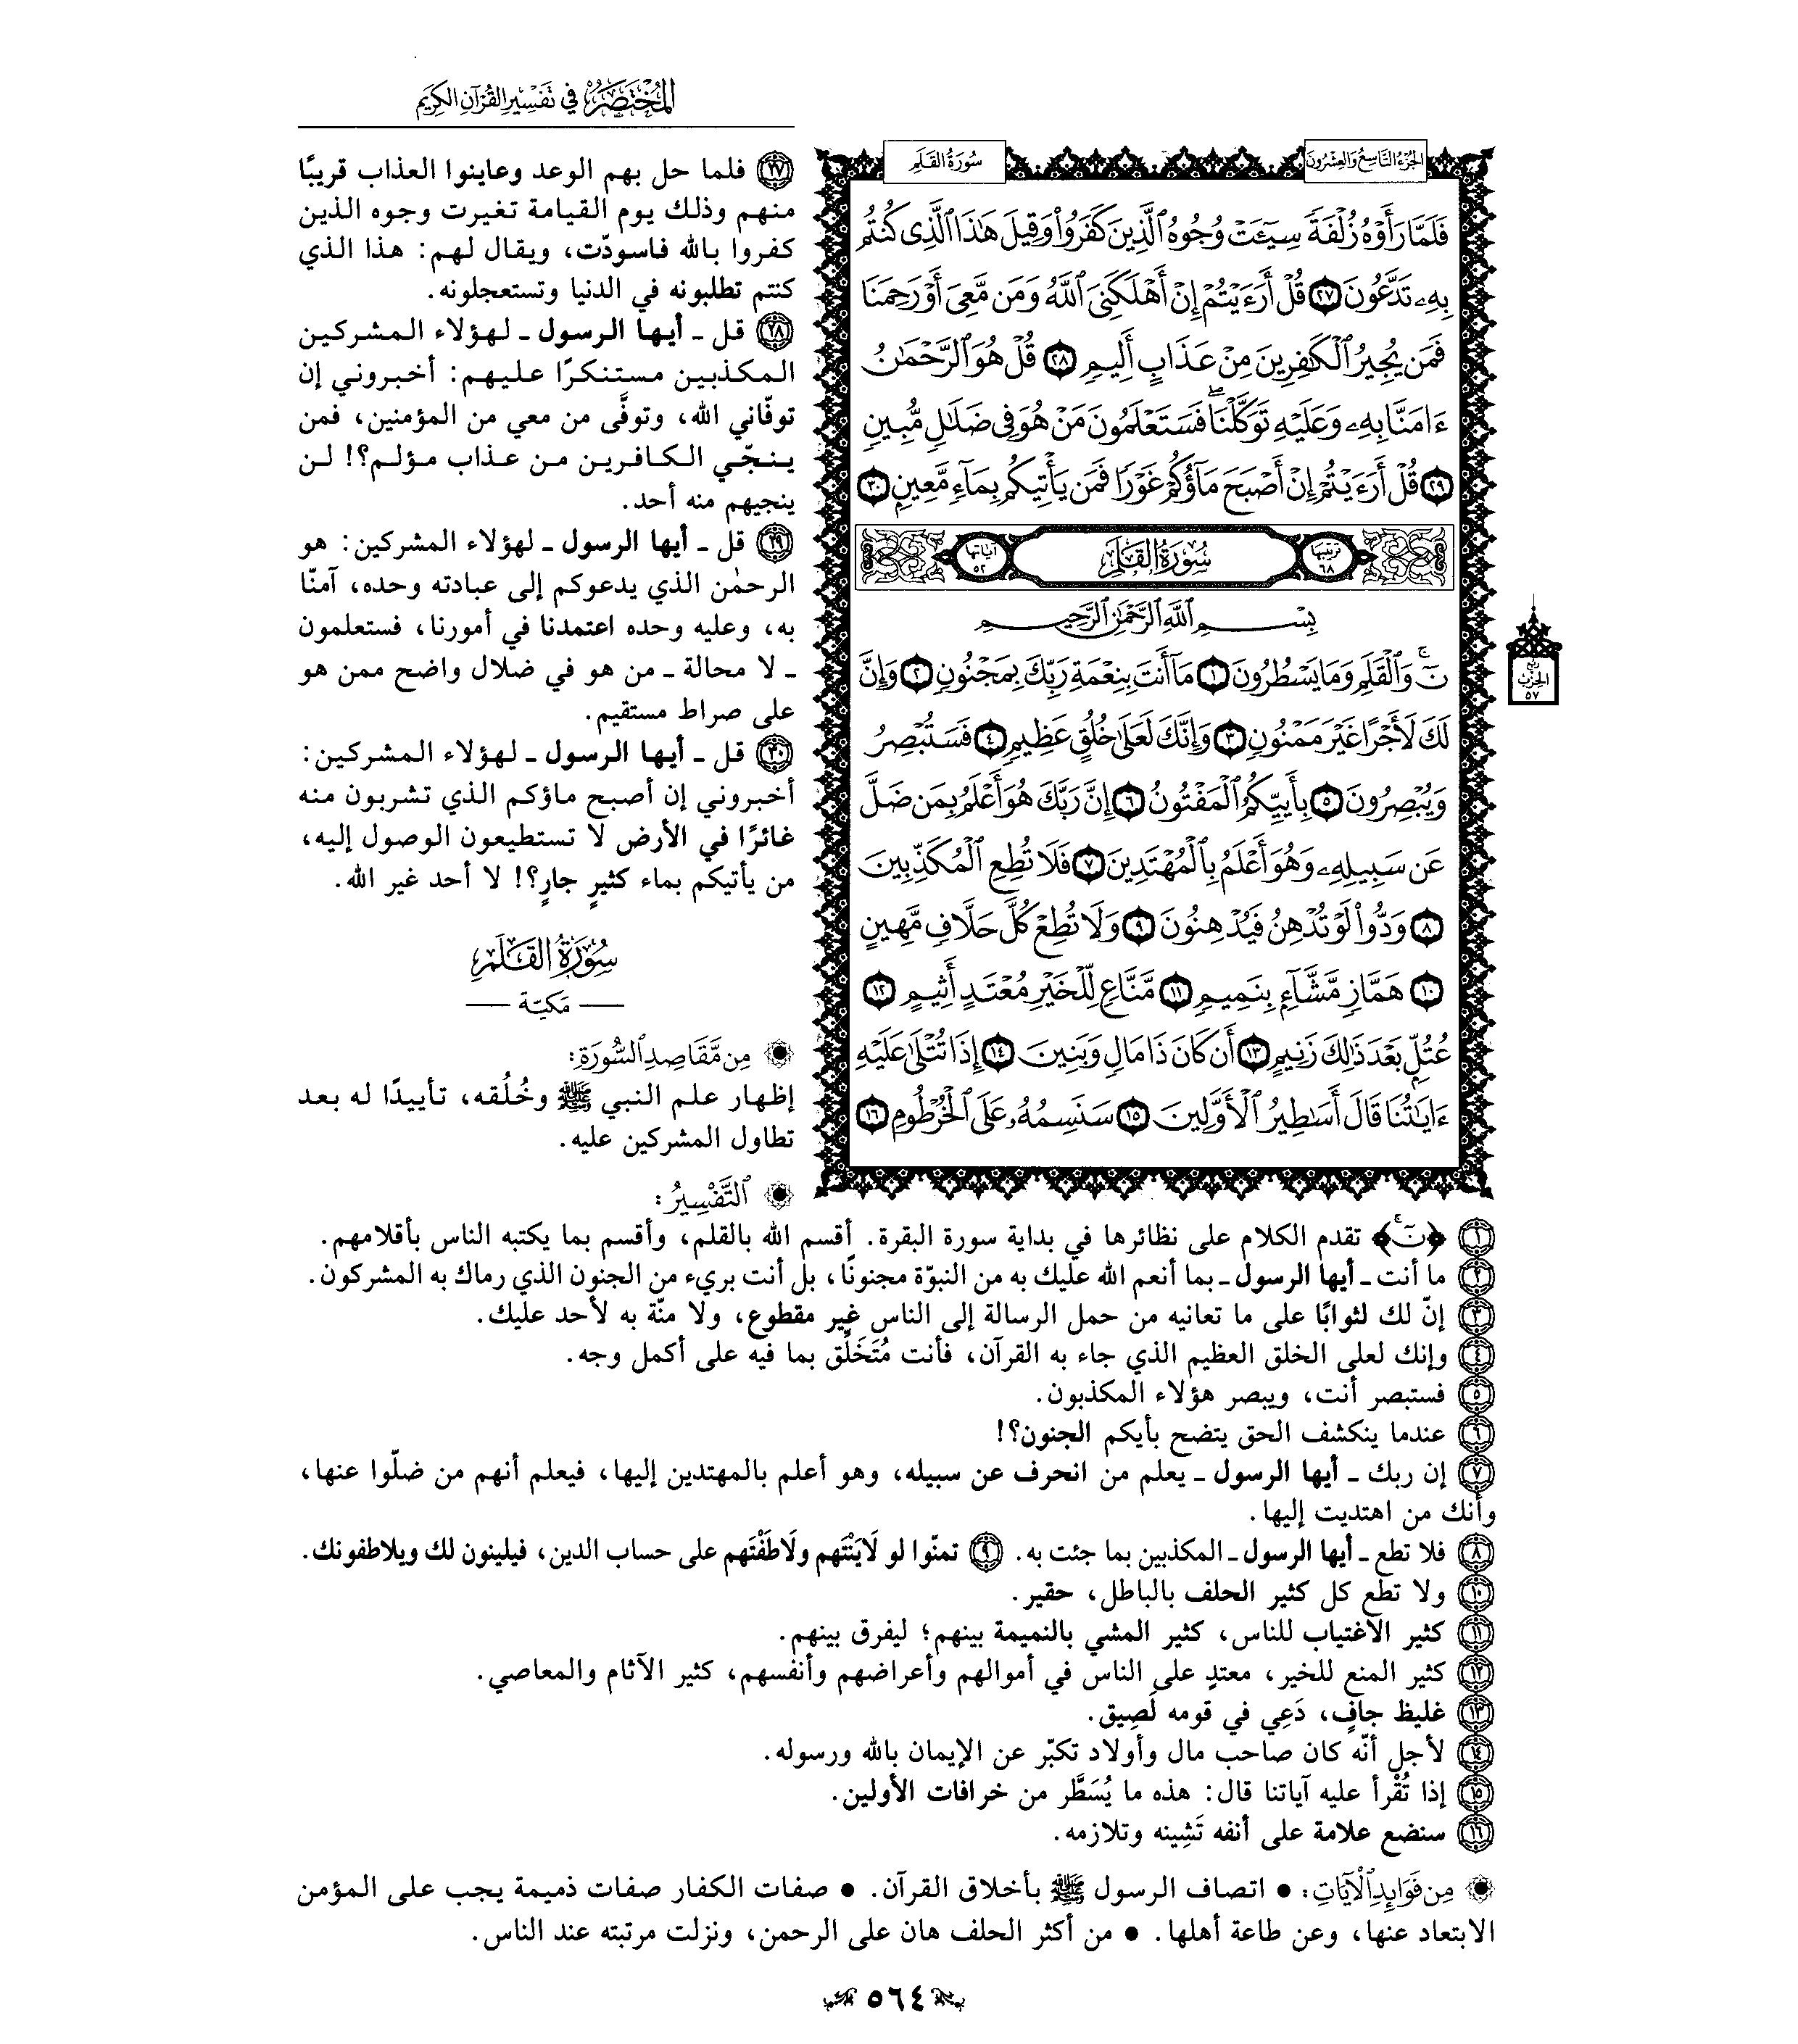 المُخْتَصَرُ فِي تَفْسِيرِ القُرْآنِ الكَرِيمِ
الجُزْءُ التَّاسِعُ وَالعِشْرُونَ
سُورَةُ القَلَمِ
فَلَمَّا رَأَوْهُ زُلْفَةً سِيٓـَٔتْ وُجُوهُ ٱلَّذِينَ كَفَرُوا۟ وَقِيلَ هَٰذَا ٱلَّذِى كُنتُم
بِهِۦ تَدَّعُونَ ٢٧ قُلْ أَرَءَيْتُمْ إِنْ أَهْلَكَنِىَ ٱللَّهُ وَمَن مَّعِىَ أَوْ رَحِمَنَا
فَمَن يُجِيرُ ٱلْكَٰفِرِينَ مِنْ عَذَابٍ أَلِيمٍ ٢٨ قُلْ هُوَ ٱلرَّحْمَٰنُ
ءَامَنَّا بِهِۦ وَعَلَيْهِ تَوَكَّلْنَا ۖ فَسَتَعْلَمُونَ مَنْ هُوَ فِى ضَلَٰلٍ مُّبِينٍ
٢٩ قُلْ أَرَءَيْتُمْ إِنْ أَصْبَحَ مَآؤُكُمْ غَوْرًا فَمَن يَأْتِيكُم بِمَآءٍ مَّعِينٍ ٣٠
ترتيبها ٦٨ سُورَةُ القَلَمِ آياتها ٥٢
بِسْمِ ٱللَّهِ ٱلرَّحْمَٰنِ ٱلرَّحِيمِ
نٓ ۚ وَٱلْقَلَمِ وَمَا يَسْطُرُونَ ١ مَآ أَنتَ بِنِعْمَةِ رَبِّكَ بِمَجْنُونٍ ٢ وَإِنَّ
لَكَ لَأَجْرًا غَيْرَ مَمْنُونٍ ٣ وَإِنَّكَ لَعَلَىٰ خُلُقٍ عَظِيمٍ ٤ فَسَتُبْصِرُ
وَيُبْصِرُونَ ٥ بِأَييِّكُمُ ٱلْمَفْتُونُ ٦ إِنَّ رَبَّكَ هُوَ أَعْلَمُ بِمَن ضَلَّ
عَن سَبِيلِهِۦ وَهُوَ أَعْلَمُ بِٱلْمُهْتَدِينَ ٧ فَلَا تُطِعِ ٱلْمُكَذِّبِينَ
٨ وَدُّوا۟ لَوْ تُدْهِنُ فَيُدْهِنُونَ ٩ وَلَا تُطِعْ كُلَّ حَلَّافٍ مَّهِينٍ
١٠ هَمَّازٍ مَّشَّآءٍۭ بِنَمِيمٍ ١١ مَّنَّاعٍ لِّلْخَيْرِ مُعْتَدٍ أَثِيمٍ ١٢
عُتُلٍّۭ بَعْدَ ذَٰلِكَ زَنِيمٍ ١٣ أَن كَانَ ذَا مَالٍ وَبَنِينَ ١٤ إِذَا تُتْلَىٰ عَلَيْهِ
ءَايَٰتُنَا قَالَ أَسَٰطِيرُ ٱلْأَوَّلِينَ ١٥ سَنَسِمُهُۥ عَلَى ٱلْخُرْطُومِ ١٦
ربع
الحزب
٥٧
٢٧ فلما حل بهم الوعد وعاينوا العذاب قريبًا
منهم وذلك يوم القيامة تغيرت وجوه الذين
كفروا بالله فاسودّت، ويقال لهم: هذا الذي
كنتم تطلبونه في الدنيا وتستعجلونه.
٢٨ قل ـ أيها الرسول ـ لهؤلاء المشركين
المكذبين مستنكرًا عليهم: أخبروني إن
توفّاني الله، وتوفَّى من معي من المؤمنين، فمن
ينجّي الكافرين من عذاب مؤلم؟! لن
ينجيهم منه أحد.
٢٩ قل ـ أيها الرسول ـ لهؤلاء المشركين: هو
الرحمٰن الذي يدعوكم إلى عبادته وحده، آمنّا
به، وعليه وحده اعتمدنا في أمورنا، فستعلمون
ـ لا محالة ـ من هو في ضلال واضح ممن هو
على صراط مستقيم.
٣٠ قل ـ أيها الرسول ـ لهؤلاء المشركين:
أخبروني إن أصبح ماؤكم الذي تشربون منه
غائرًا في الأرض لا تستطيعون الوصول إليه،
من يأتيكم بماء كثيرٍ جارٍ؟! لا أحد غير الله.
سُورَةُ القَلَمِ
مَكيّة
مِن مَّقَاصِدِ ٱلسُّورَةِ:
إظهار علم النبي ﷺ وخُلُقه، تأييدًا له بعد
تطاول المشركين عليه.
ٱلتَّفْسِيرُ:
١ ﴿نٓ ۚ﴾ تقدم الكلام على نظائرها في بداية سورة البقرة. أقسم الله بالقلم، وأقسم بما يكتبه الناس بأقلامهم.
٢ ما أنت ـ أيها الرسول ـ بما أنعم الله عليك به من النبوّة مجنونًا، بل أنت بريء من الجنون الذي رماك به المشركون.
٣ إنّ لك لثوابًا على ما تعانيه من حمل الرسالة إلى الناس غير مقطوع، ولا منّة به لأحد عليك.
٤ وإنك لعلى الخلق العظيم الذي جاء به القرآن، فأنت مُتَخَلِّق بما فيه على أكمل وجه.
٥ فستبصر أنت، ويبصر هؤلاء المكذبون.
٦ عندما ينكشف الحق يتضح بأيكم الجنون؟!
٧ إن ربك ـ أيها الرسول ـ يعلم من انحرف عن سبيله، وهو أعلم بالمهتدين إليها، فيعلم أنهم من ضلّوا عنها،
وأنك من اهتديت إليها.
٨ فلا تطع ـ أيها الرسول ـ المكذبين بما جئت به. ٩ تمنّوا لو لَايَنْتَهم ولَاطَفْتَهم على حساب الدين، فيلينون لك ويلاطفونك.
١٠ ولا تطع كل كثير الحلف بالباطل، حقير.
١١ كثير الاغتياب للناس، كثير المشي بالنميمة بينهم؛ ليفرق بينهم.
١٢ كثير المنع للخير، معتدٍ على الناس في أموالهم وأعراضهم وأنفسهم، كثير الآثام والمعاصي.
١٣ غليظ جافٍ، دَعِي في قومه لَصِيق.
١٤ لأجل أنّه كان صاحب مال وأولاد تكبّر عن الإيمان بالله ورسوله.
١٥ إذا تُقْرأ عليه آياتنا قال: هذه ما يُسَطَّر من خرافات الأولين.
١٦ سنضع علامة على أنفه تَشِينه وتلازمه.
مِن فَوَائِدِ ٱلْآيَاتِ: • اتصاف الرسول ﷺ بأخلاق القرآن. • صفات الكفار صفات ذميمة يجب على المؤمن
الابتعاد عنها، وعن طاعة أهلها. • من أكثر الحلف هان على الرحمن، ونزلت مرتبته عند الناس.
٥٦٤